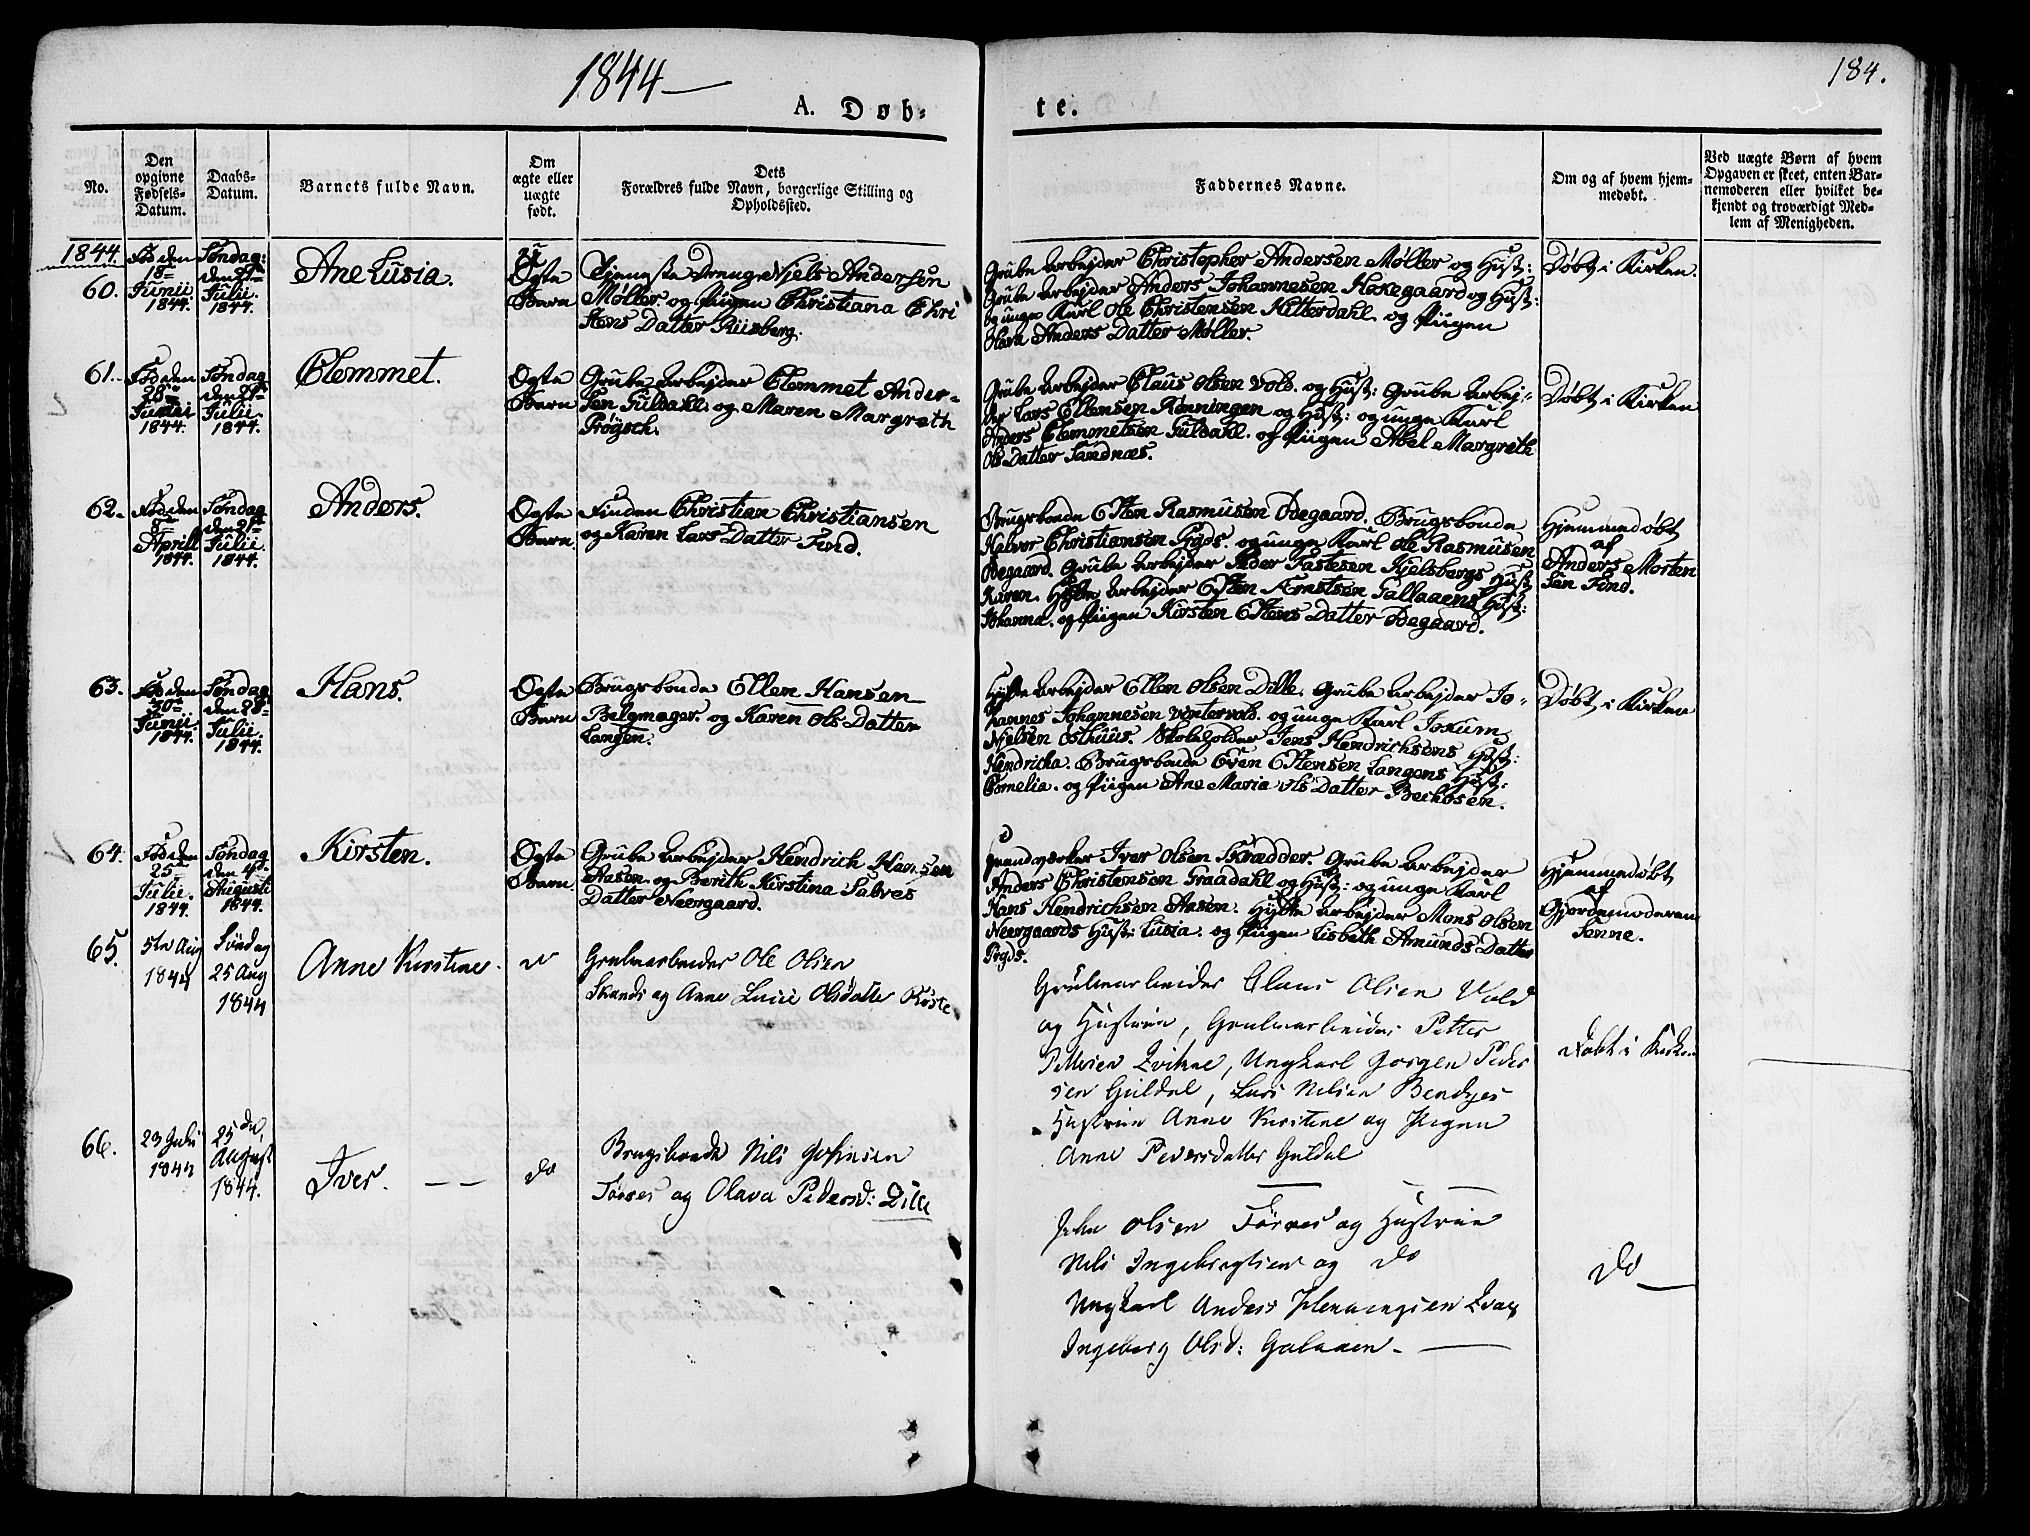 1844
184.
A. Døb-
te.
No.
Den
opgivne
Fødsels-
Datum.
Daabs-
Datum.
Barnets fulde Navn.
Om
ægte eller
uægte
født.
Dets
Forældres fulde Navn, borgerlige Stilling og
Opholdssted.
Faddernes Navne.
Om og af hvem hjem-
medøbt.
Ved uægte Børn af hvem
Opgaven er skeet, enten Bar-
nemoderen eller hvilket be-
kjendt og troværdigt Med-
lem af Menigheden.
1844.
60.
Fød den
18de
Junii
1844.
Søndag
den 21de
Julii
1844.
Ane Lusia.
Barn
Tjeneste Dreng Njels Andersen
Møller og Piigen Christiana Chri
stens Datter Riisberg.
Grube Arbejder Christopher Andersen Møller og Hust:
Grube Arbejder Anders Johannesen Hakegaard og Hust:
og unge Karl Ole Christensen Hitterdahl. og Piigen
Anders Datter Møller.
Døbt i Kirken.
61.
Fød den
Junii
1844.
Søndag
Julii.
1844.
Clemmet.
Ægte
Barn
Grube Arbejder Clemmet Ander-
sen Guldahl. og Maren Margreth
Prøgsch.
Grube Arbejder Claus Olsen Vold. og Hust: Grube Arbej-
der Lars Ellensen Rønningen og Hust: og unge Karl
Anders Clemmetsen Guldahl. og Piigen Abel Margreth
Ols Datter Sandnæs.
Døbt i Kirken
62.
Fød den
8de
Aprill
1844.
Søndag
den 28de
Julii.
1844.
Anders.
Ægte
Barn.
Finden Christian Christiansen
og Karen Lars Datter Find.
Brugsbonde Esten Rasmusen Ødegaard. Brugsbonde
Halvor Christiansen Gryds. og unge Karl Ole Rasmusen
Ødegaard. Grube Arbejder Peder Fastesen Kjelsbergs Hust
Karen. Hytte Arbejder Esten Arntsen Gallaaens Hust:
Johanna. og Piigen Kirsten Estens Datter Ødegaard.
Hjemmedøbt
af
Anders Morten
sen Find.
63.
Fød den
30de
Junii.
1844.
Søndag
den 28de
Julii.
1844.
Hans.
Ægte
Barn
Brugsbonde Ellen Hansen
Belgmager. og Karen Ols Datter
Langen.
Hytte Arbejder Ellen Olsen Dille. Grube Arbejder Jo-
hannes Johannesen Vintervold. og unge Karl Jokum
Njelsen Osthuus. Skoleholder Jens Hendrichsens Hust:
Hendricka. Brugsbonde Even Estensen Langens Hust:
Cornelia. og Piigen Ane Maria Ols Datter Beckosen.
Døbt i Kirken
64.
Fød den
25de
Julii.
1844.
Søndag
den 4de
Augusti
1844.
Kirsten.
Ægte
Barn.
Grube Arbejder Hendrich Hansen
Aasen. og Berith Kirstina Salves
Datter Neergaard.
Iver Olsen Skrædder. Grube Arbejder
Anders Christensen Graadahl og Hust: og unge Karl
Hans Hendrichsen Aasen. Hytte Arbejder Mons Olsen
Neergaards Hust: Lusia. og Piigen Lisbeth Amunds Datter
Gryds.
Hjemmedøbt
af
Gjordemoderen
Senne.
65.
5te Aug
1844
Søndag
25 Aug
1844
Anne Kirstine.
do
Grubearbeider Ole Olsen
Skands og Anne Lucie Olsdatter Røste
Grubearbeider Claus Olsen Vold
og Hustrue, Grubearbeider Petter
Pettersen Evihne, Ungkarl Jørgen Peder
sen Guldal, Lars Nilsen Bendxes
Hustrue Anne Kirstine og Pigen
Anne Pedersdatter Guldal
Døbt i Kirken
66.
23 Juli
1844
25 de,
August
1844.
Iver.
do
Brugsbonde Nils Johnsen
Tørres og Olava Pedersd: Dille
John Olsen Tørres og Hustrue
Nils Ingebrigtsen og do
Ungkarl Anders Henningsen
Ingeborg Olsd: Galaaen.
do